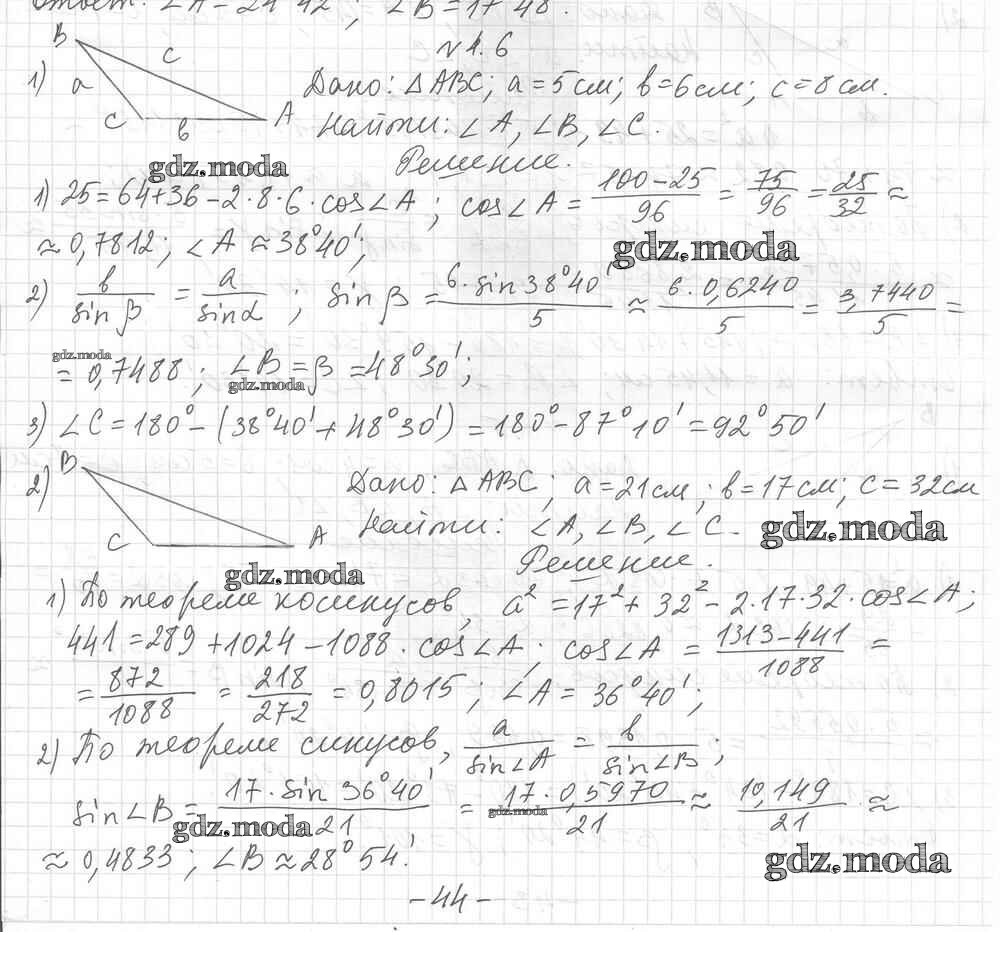 Ответ: ∠A = 24°42'; ∠B = 17°48'.
N 1.6
1) B a c C b A
Дано: △ABC; a = 5 см; b = 6 см; c = 8 см.
Найти: ∠A, ∠B, ∠C.
gdz.moda
Решение.
1) 25 = 64+36 − 2·8·6·cos∠A; cos∠A = (100−25)/96 = 75/96 = 25/32 ≈
≈ 0,7812; ∠A ≈ 38°40';
gdz.moda
2) b/sinβ = a/sinα; sinβ = 6·sin38°40'/5 ≈ 6·0,6240/5 = 3,7440/5 =
gdz.moda
= 0,7488; ∠B = β = 48°30';
gdz.moda
3) ∠C = 180° − (38°40' + 48°30') = 180° − 87°10' = 92°50'
2) B C A
Дано: △ABC; a = 21 см; b = 17 см; c = 32 см
Найти: ∠A, ∠B, ∠C.
gdz.moda
Решение.
gdz.moda
1) По теореме косинусов, a² = 17² + 32² − 2·17·32·cos∠A;
441 = 289 + 1024 − 1088·cos∠A; cos∠A = (1313−441)/1088 =
= 872/1088 = 218/272 = 0,8015; ∠A = 36°40';
2) По теореме синусов, a/sin∠A = b/sin∠B;
sin∠B = 17·sin36°40'/21 = 17·0,5970/21 ≈ 10,149/21 ≈
gdz.moda
gdz.moda
≈ 0,4833; ∠B ≈ 28°54'.
gdz.moda
-44-